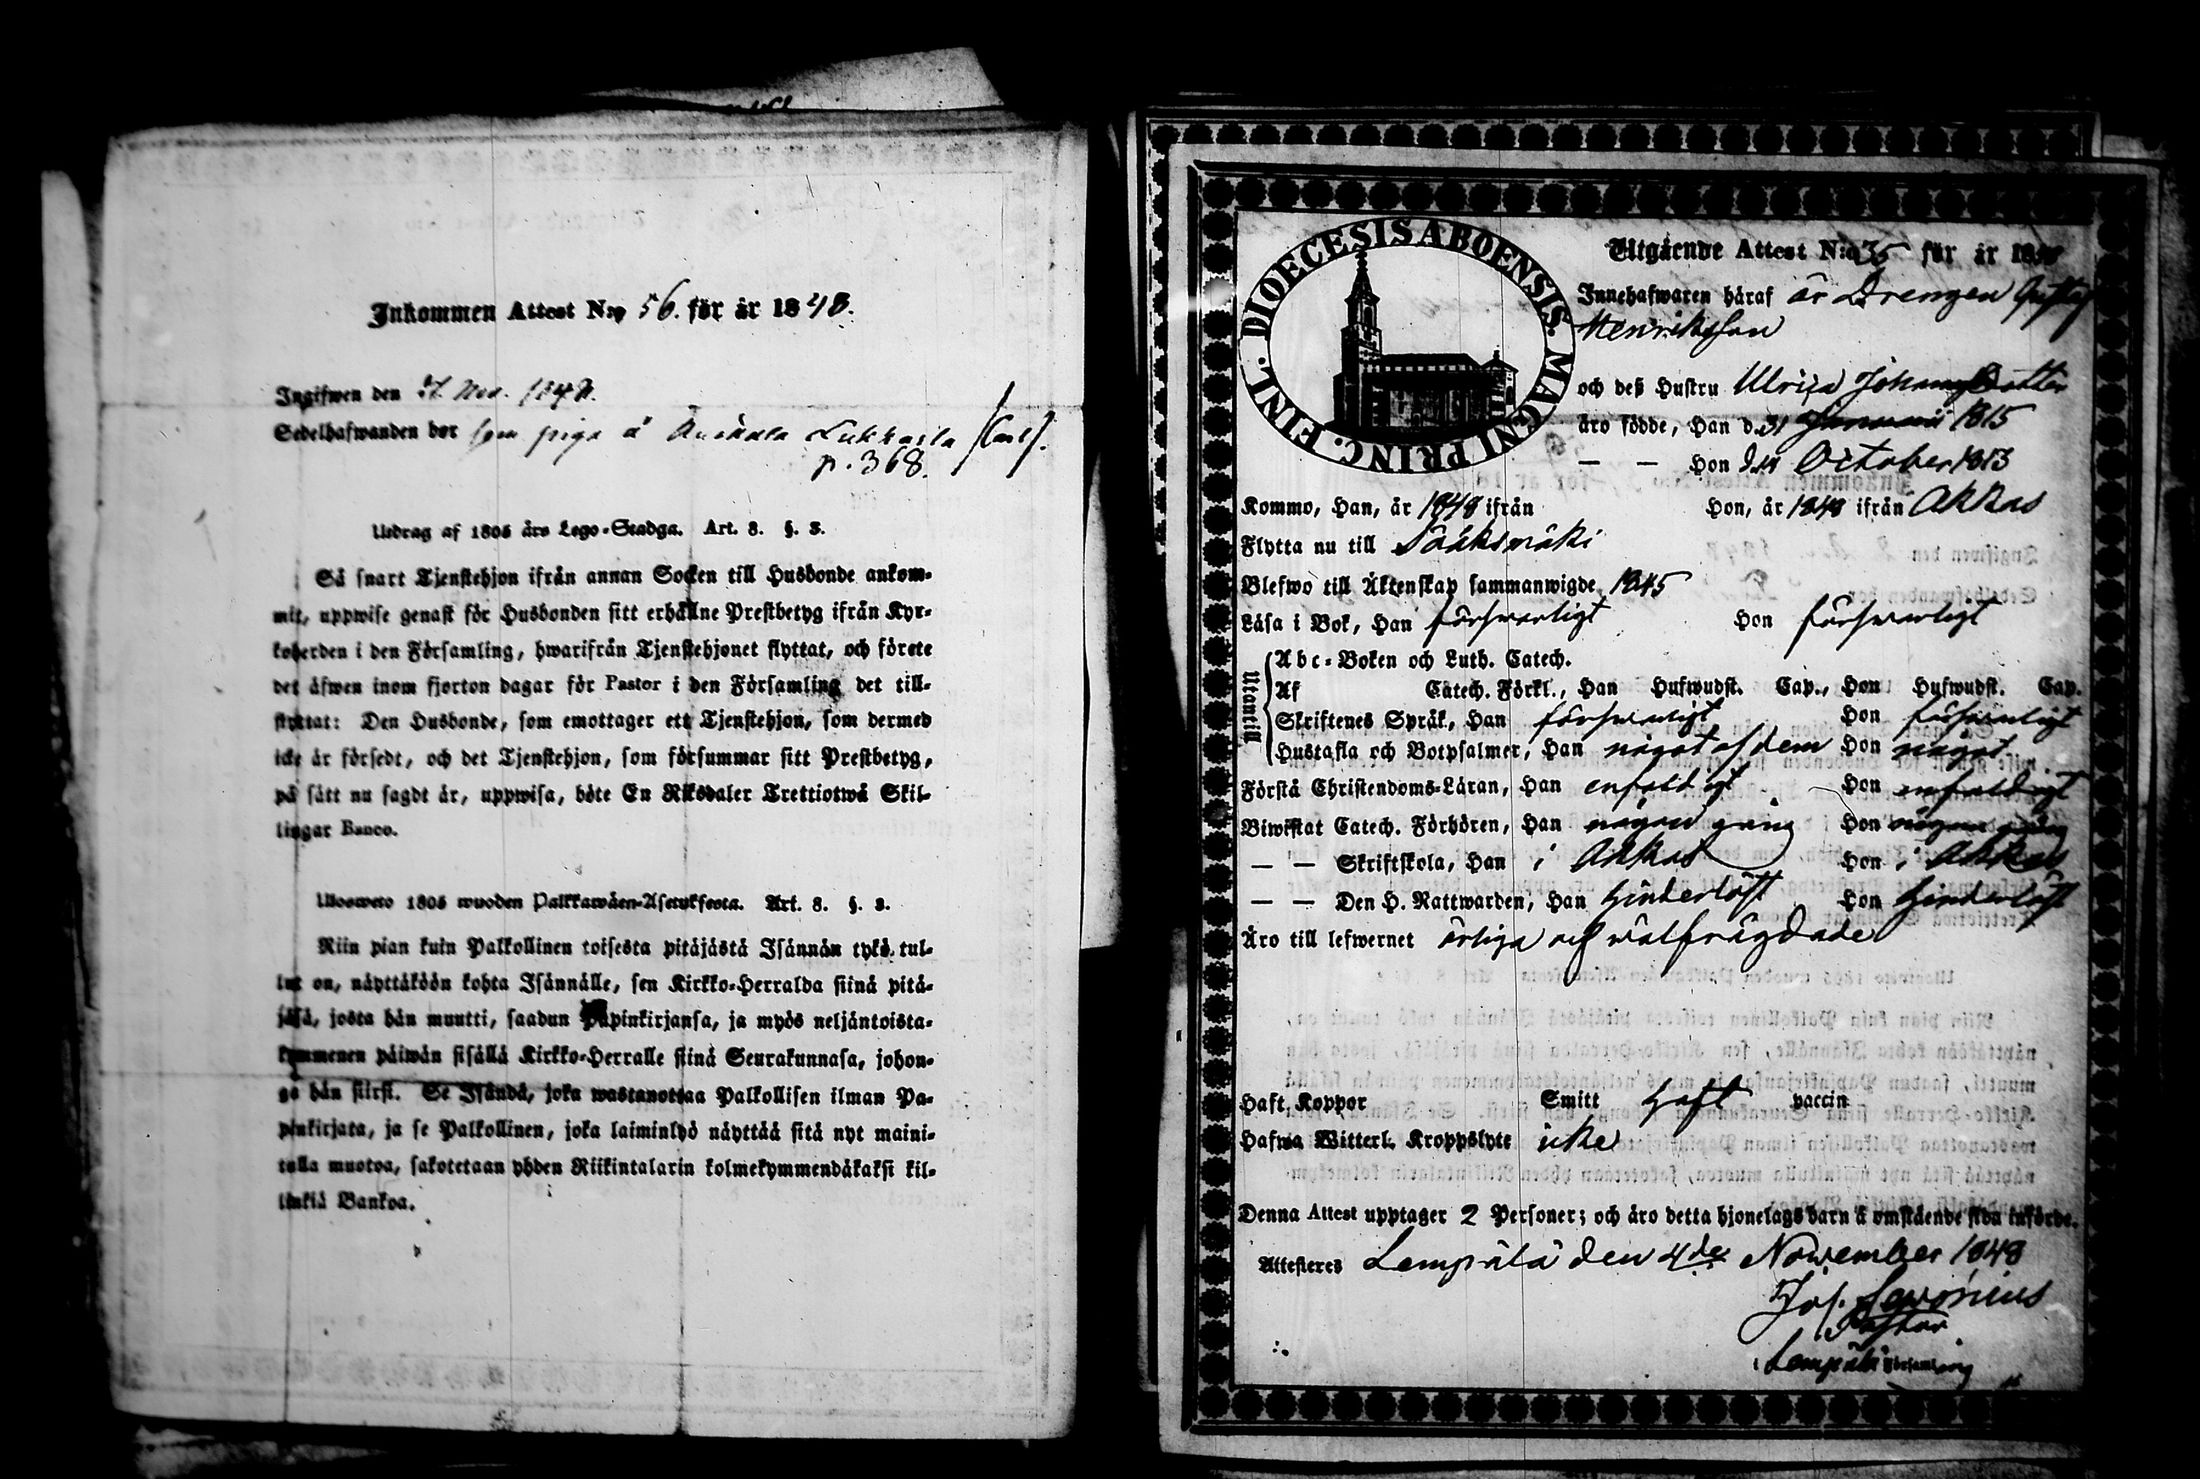 Inkommen Attest N:o 56. för år 1848.
Ingifwen den Nov. 1848.
Sedelhafwanden bor som piga å Lukkarila
p. 368.
Utdrag af 1805 års Lego-Stadga. Art. 8. §. 3.
Så snart Tjenstehjon ifrån annan Socken till Husbonde ankom-
mit, uppwise genast för Husbonden sitt erhållne Prestbetyg ifrån Kyr-
koherden i den Församling, hwarifrån Tjenstehjonet flyttat, och förete
det äfwen inom fjorton dagar för Pastor i den Församling det till-
flyttat: Den Husbonde, som emottager ett Tjenstehjon, som dermed
icke är försedt, och det Tjenstehjon, som försummar sitt Prestbetyg,
på sätt nu sagdt är, uppwisa, böte En Riksdaler Trettiotwå Skil-
lingar Banco.
Ulosweto 1805 wuoden Palkkawäen-Asetuksesta. Art. 8. §. 3.
Niin pian kuin Palkollinen toisesta pitäjästä Isännän tykö tul-
lut on, näyttäköön kohta Isännälle, sen Kirkko-Herralda siinä pitä-
jäsä, josta hän muutti, saadun Papinkirjansa, ja myös neljäntoista-
kymmenen päiwän sisällä Kirkko-Herralle siinä Seurakunnasa, johon-
ga hän siirsi. Se Isändä, joka wastanottaa Palkollisen ilman Pa-
pinkirjata, ja se Palkollinen, joka laiminlyö näyttää sitä nyt maini-
tulla muotoa, sakotetaan yhden Riikintalarin kolmekymmendäkaksi kil-
linkiä Bankoa.
DIOECESIS ABOENSIS. MAGNI PRINC. FINL.
Utgående Attest N:o 35 för år 1848
Innehafwaren häraf är Drengen Gustaf
Henriksson
och deß Hustru Ulrica Johansdotter
äro födde, Han d. 31 Januarii 1815
— — Hon d. October 1813
Kommo, Han, år 1848 ifrån Hon, år 1848 ifrån Akkas
Flytta nu till Sääksmäki
Blefwo till Äktenskap sammanwigde 1845
Läsa i Bok, Han försvarligt Hon försvarligt
Utantill
Abc-Boken och Luth. Catech.
Af Catech. Förkl., Han Hufwudst. Cap., Hon Hufwudst. Cap.
Skriftenes Språk, Han försvarligt Hon försvarligt
Hustafla och Botpsalmer, Han något af dem Hon något
Förstå Christendoms-Läran, Han enfaldigt Hon enfaldigt
Biwistat Catech. Förhören, Han någon gång Hon någon gång
— — Skriftskola, Han i Akkas Hon i Akkas
— — Den H. Nattwarden, Han hinderlöst Hon hinderlöst
Äro till lefwernet ärliga och välfrägdade
Haft Koppor Smitt haft vaccin
Hafwa Witterl. Kroppslyte icke
Denna Attest upptager 2 Personer; och äro detta hjonelags barn å omstående sida införde.
Attesteres Lempälä den 4de November 1848
Jos.
Pastor
Lempälä Församling